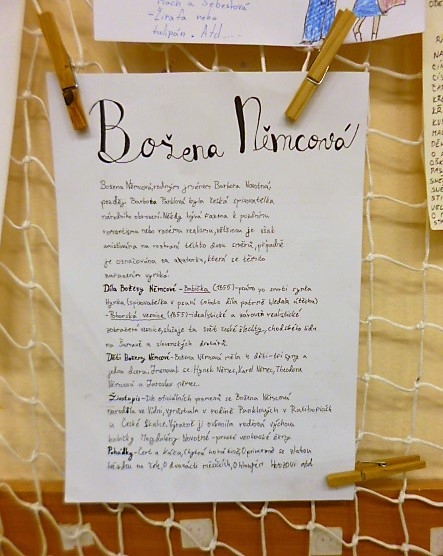 Mach a Šebestová
-Žirafa nebo
tulipán. Atd....
Božena Němcová
Božena Němcová, rodným jménem Barbora Novotná,
později Barbora Panklová byla česká spisovatelka
národního obrození. Někdy bývá řazena k pozdnímu
romantismu nebo ranému realismu, většinou je však
umisťována na rozhraní těchto dvou směrů, případně
je označována za autorku, která se těmito
zařazením vymyká.
Díla Boženy Němcové - Babička (1855) - psáno po smrti syna
Hynka (spisovatelka v psaní tohoto díla patrně hledala útěchu)
- Pohorská vesnice (1855) - idealistické a zároveň realistické
zobrazení vesnice, slučuje tu svět české šlechty, chodského lidu
na Šumavě a slovenských drotarů.
Děti Boženy Němcové - Božena Němcová měla 4 děti - tři syny a
jednu dceru. Jmenovali se Hynek Němec, Karel Němec, Theodora
Němcová a Jaroslav němec.
Životopis - Dle oficiálních pramenů se Božena Němcová
narodila ve Vídni, vyrůstala v rodině Panklových v Ratibořicích
u České Skalice. Výrazně ji ovlivnila rodinná výchova
babičky Magdalény Novotné - prosté venkovské ženy
Pohádky - Čert a Káča, Chytrá horákyně, O princezně se zlatou
hvězdou na čele, O dvanácti měsíčkách, O hloupém Honzovi atd